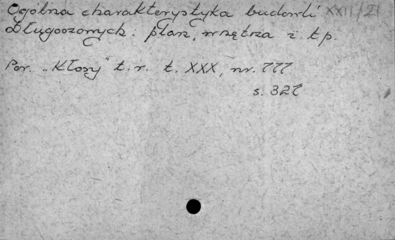 Ogólna charakterystyka budowli XXII/21
długoszowych: plan, wnętrza i t.p.
Por. "Kłosy" t.r. t. XXX, nr. 777
s. 327